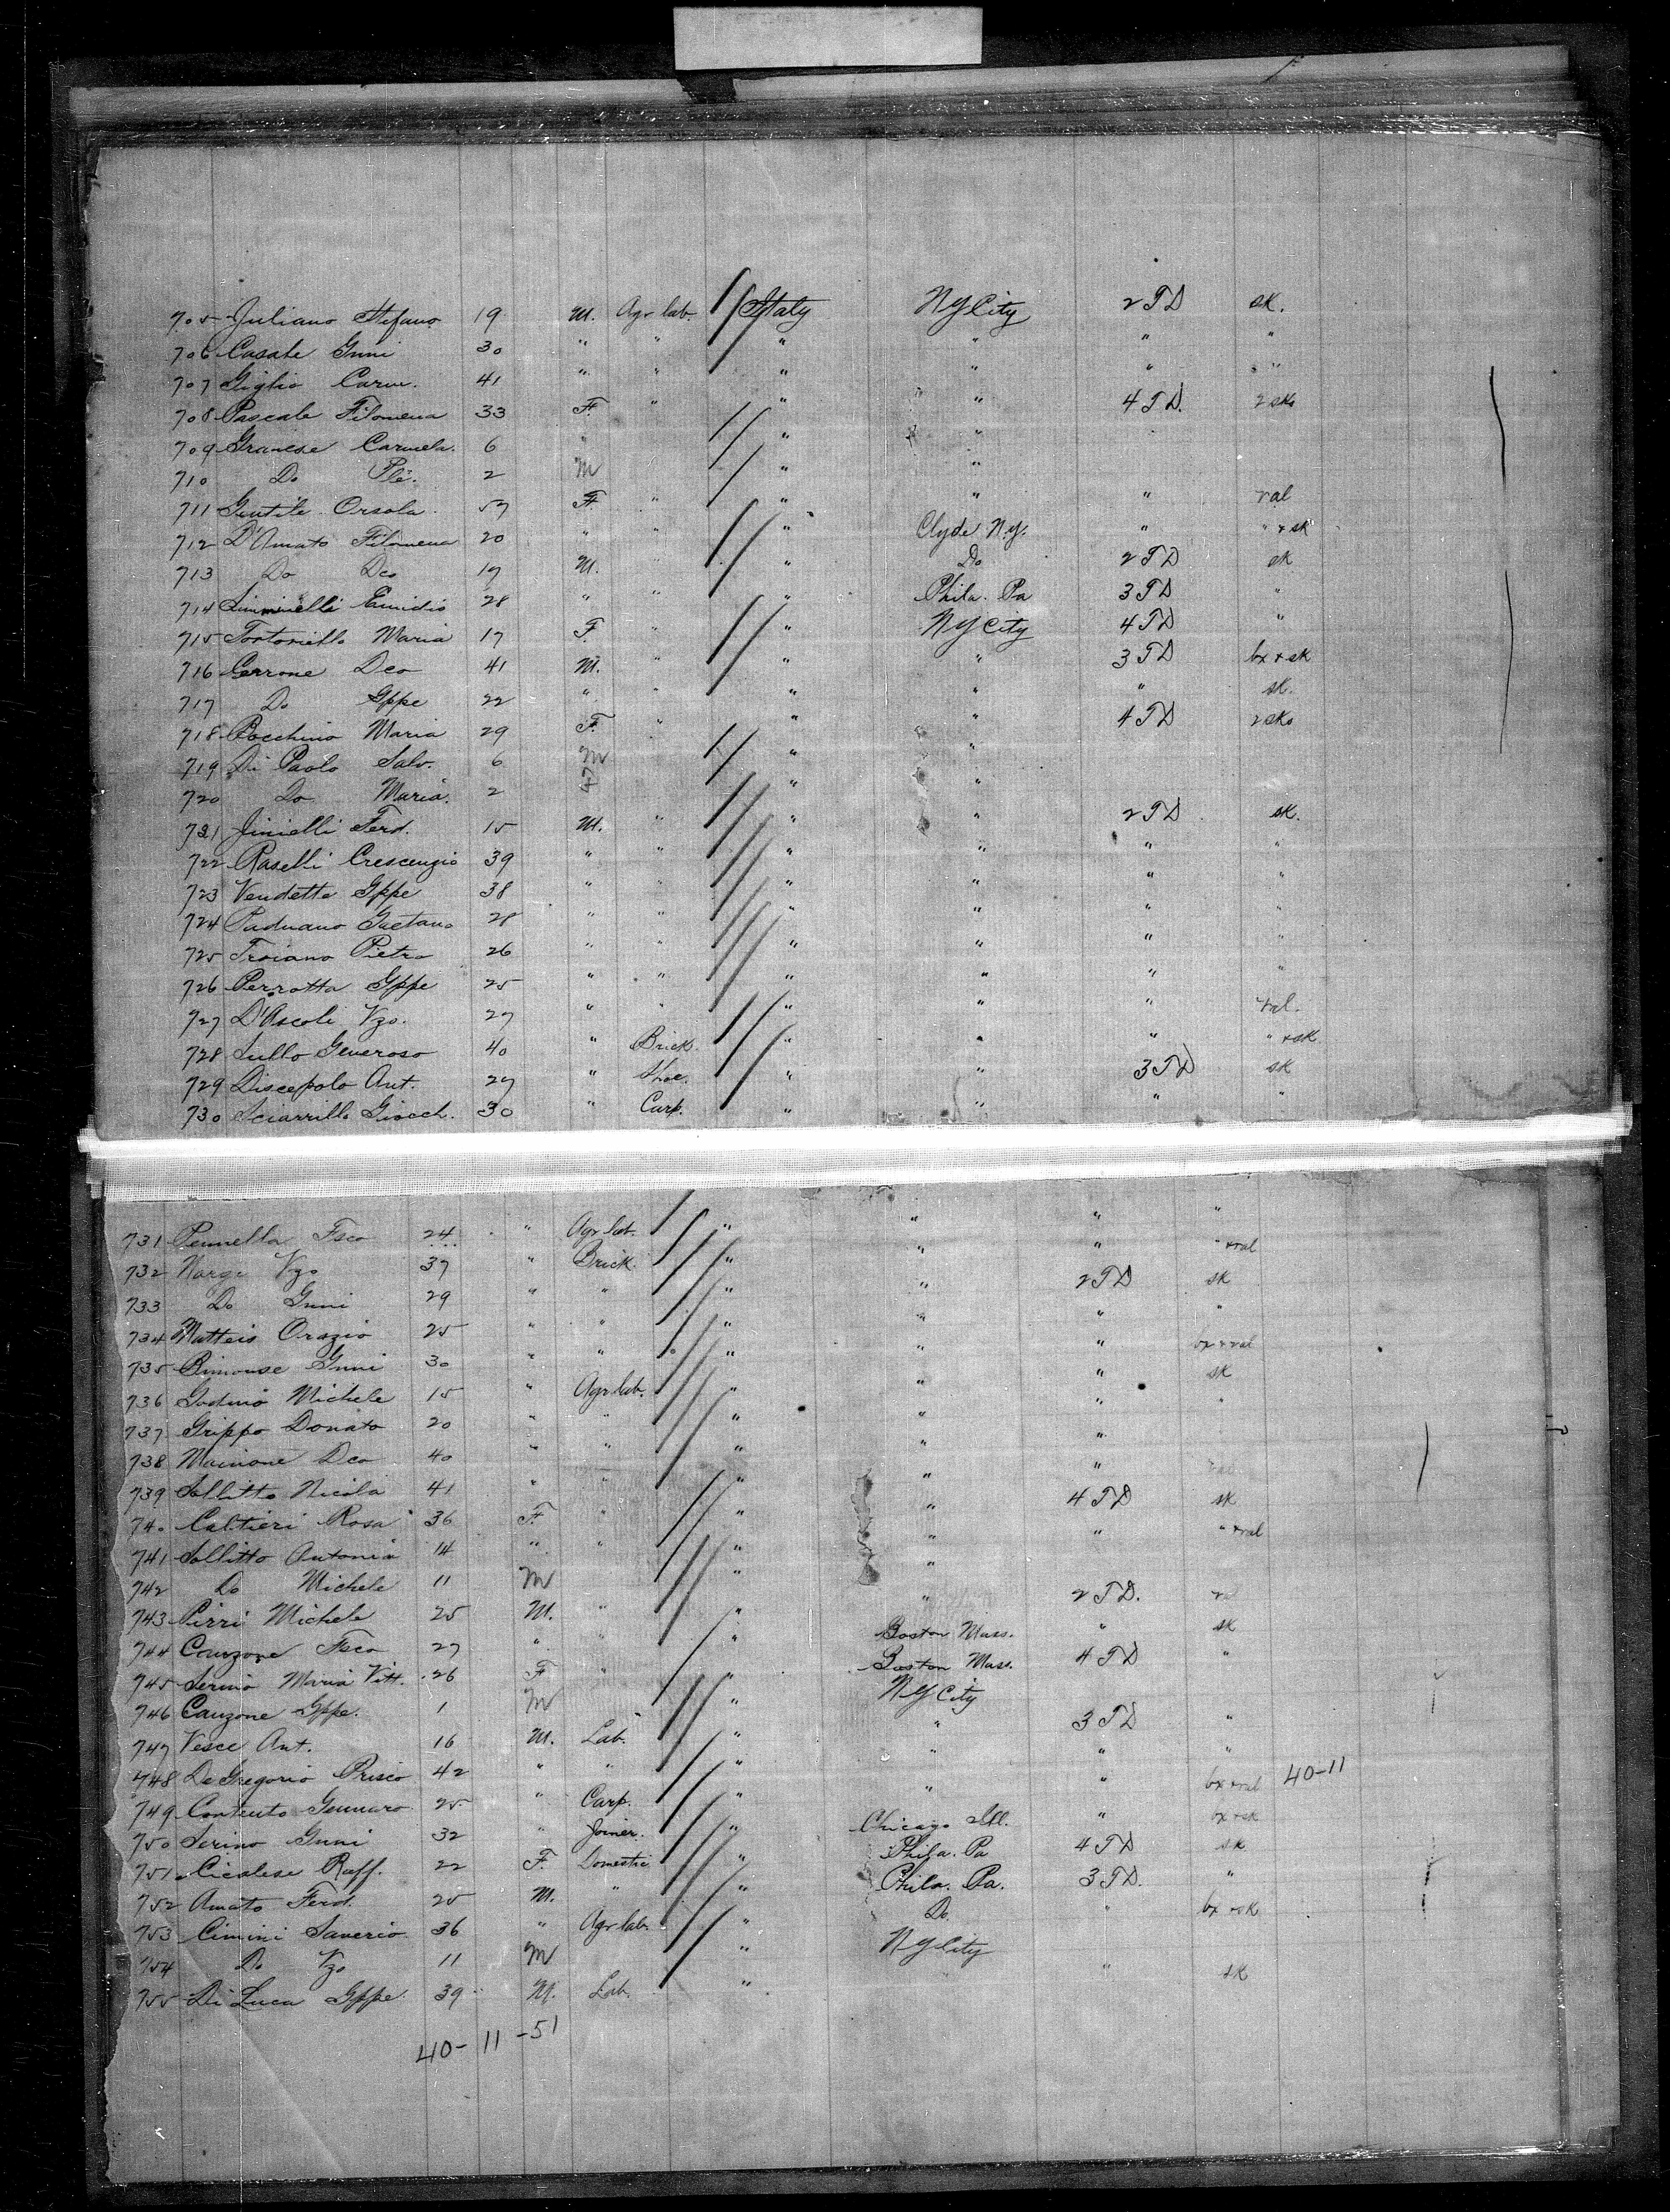 705 Juliano Stefano 19 M. Agr lab. Italy NY City 2 TD sk.
706 Casale Gnni 30 " " " " " "
707 Giglio Carm. 41 " " " " " "
708 Pascale Filomena 33 F. " " " 4 TD. 2 sks
709 Granese Carmela. 6 " " "
710 Do 2 M " "
711 Gentile Orsola. 57 F. " " " " val
712 D'Amato Filomena 20 " " " Clyde N.Y. " " + sk
713 Do Dco 17 M. " " Do 2 TD sk
714 Emidio 28 " " " Phila. Pa 3 TD "
715 Tortoriello Maria 17 F. " " NY City 4 TD "
716 Cerrone Dco 41 M. " " " 3 TD bx + sk
717 Do Gppe 22 " " " " " sk.
718 Bocchino Maria 29 F. " " " 4 TD 2 sks
719 Di Paolo Salv. 6 M " "
720 Do Maria. 2 F " "
721 Ferd. 15 M. " " " 2 TD sk.
722 Raselli Crescenzio 39 " " " " " "
723 Vendetto Gppe 38 " " " " " "
724 Paduano Gaetano 28 " " " " " "
725 Troiano Pietro 26 " " " " " "
726 Perrotta Gppe 25 " " " " " "
727 D'Ascoli Vzo. 27 " " " " " val.
728 Sullo Generoso 40 " Brick. " " " " + sk
729 Discepolo Ant. 27 " Shoe. " " 3 TD sk
730 Sciarrillo Giocch. 30 " Carp. " " " "
731 Pennella Fsco 24 " Agr lab. " " " "
732 Vzo 37 " Brick. " " " " + val
733 Do Gnni 29 " " " " 2 TD sk
734 Matteis Orazio 25 " " " " " "
735 Gnni 30 " " " " " bx + val
736 Godino Michele 15 " Agr lab. " " " sk
737 Grippo Donato 20 " " " " " "
738 Mainone Dco 40 " " " " "
739 Sollitto Nicola 41 " " " " "
740 Caltieri Rosa 36 F. " " " 4 TD sk
741 Sollitto Antonia 14 " " " " " " + val
742 Do Michele 11 M " "
743 Pirri Michele 25 M. " " " 2 TD.
744 Canzone Fsco 27 " " " Boston Mass. " sk
745 Serino Maria Vitt. 26 F " " Boston Mass. 4 TD "
746 Canzone Gppe. 1 M " NY City
747 Vesce Ant. 16 M. Lab. " " 3 TD "
748 De Gregorio Prisco 42 " " " " " "
749 Contento Gennaro 25 " Carp. " " " bx + val 40-11
750 Serino Gnni 32 " Joiner. " Chicago Ill. " bx + sk
751 Cicalese Raff. 22 F. Domestic " Phila. Pa 4 TD sk
752 Amato Ferd. 25 M. " " Phila. Pa. 3 TD. "
753 Cimini Saverio 36 " Agr lab. " Do " bx + sk
754 Do Vzo 11 M " NY City
755 Di Luca Gppe. 39 M. Lab. " " sk
40-11-51